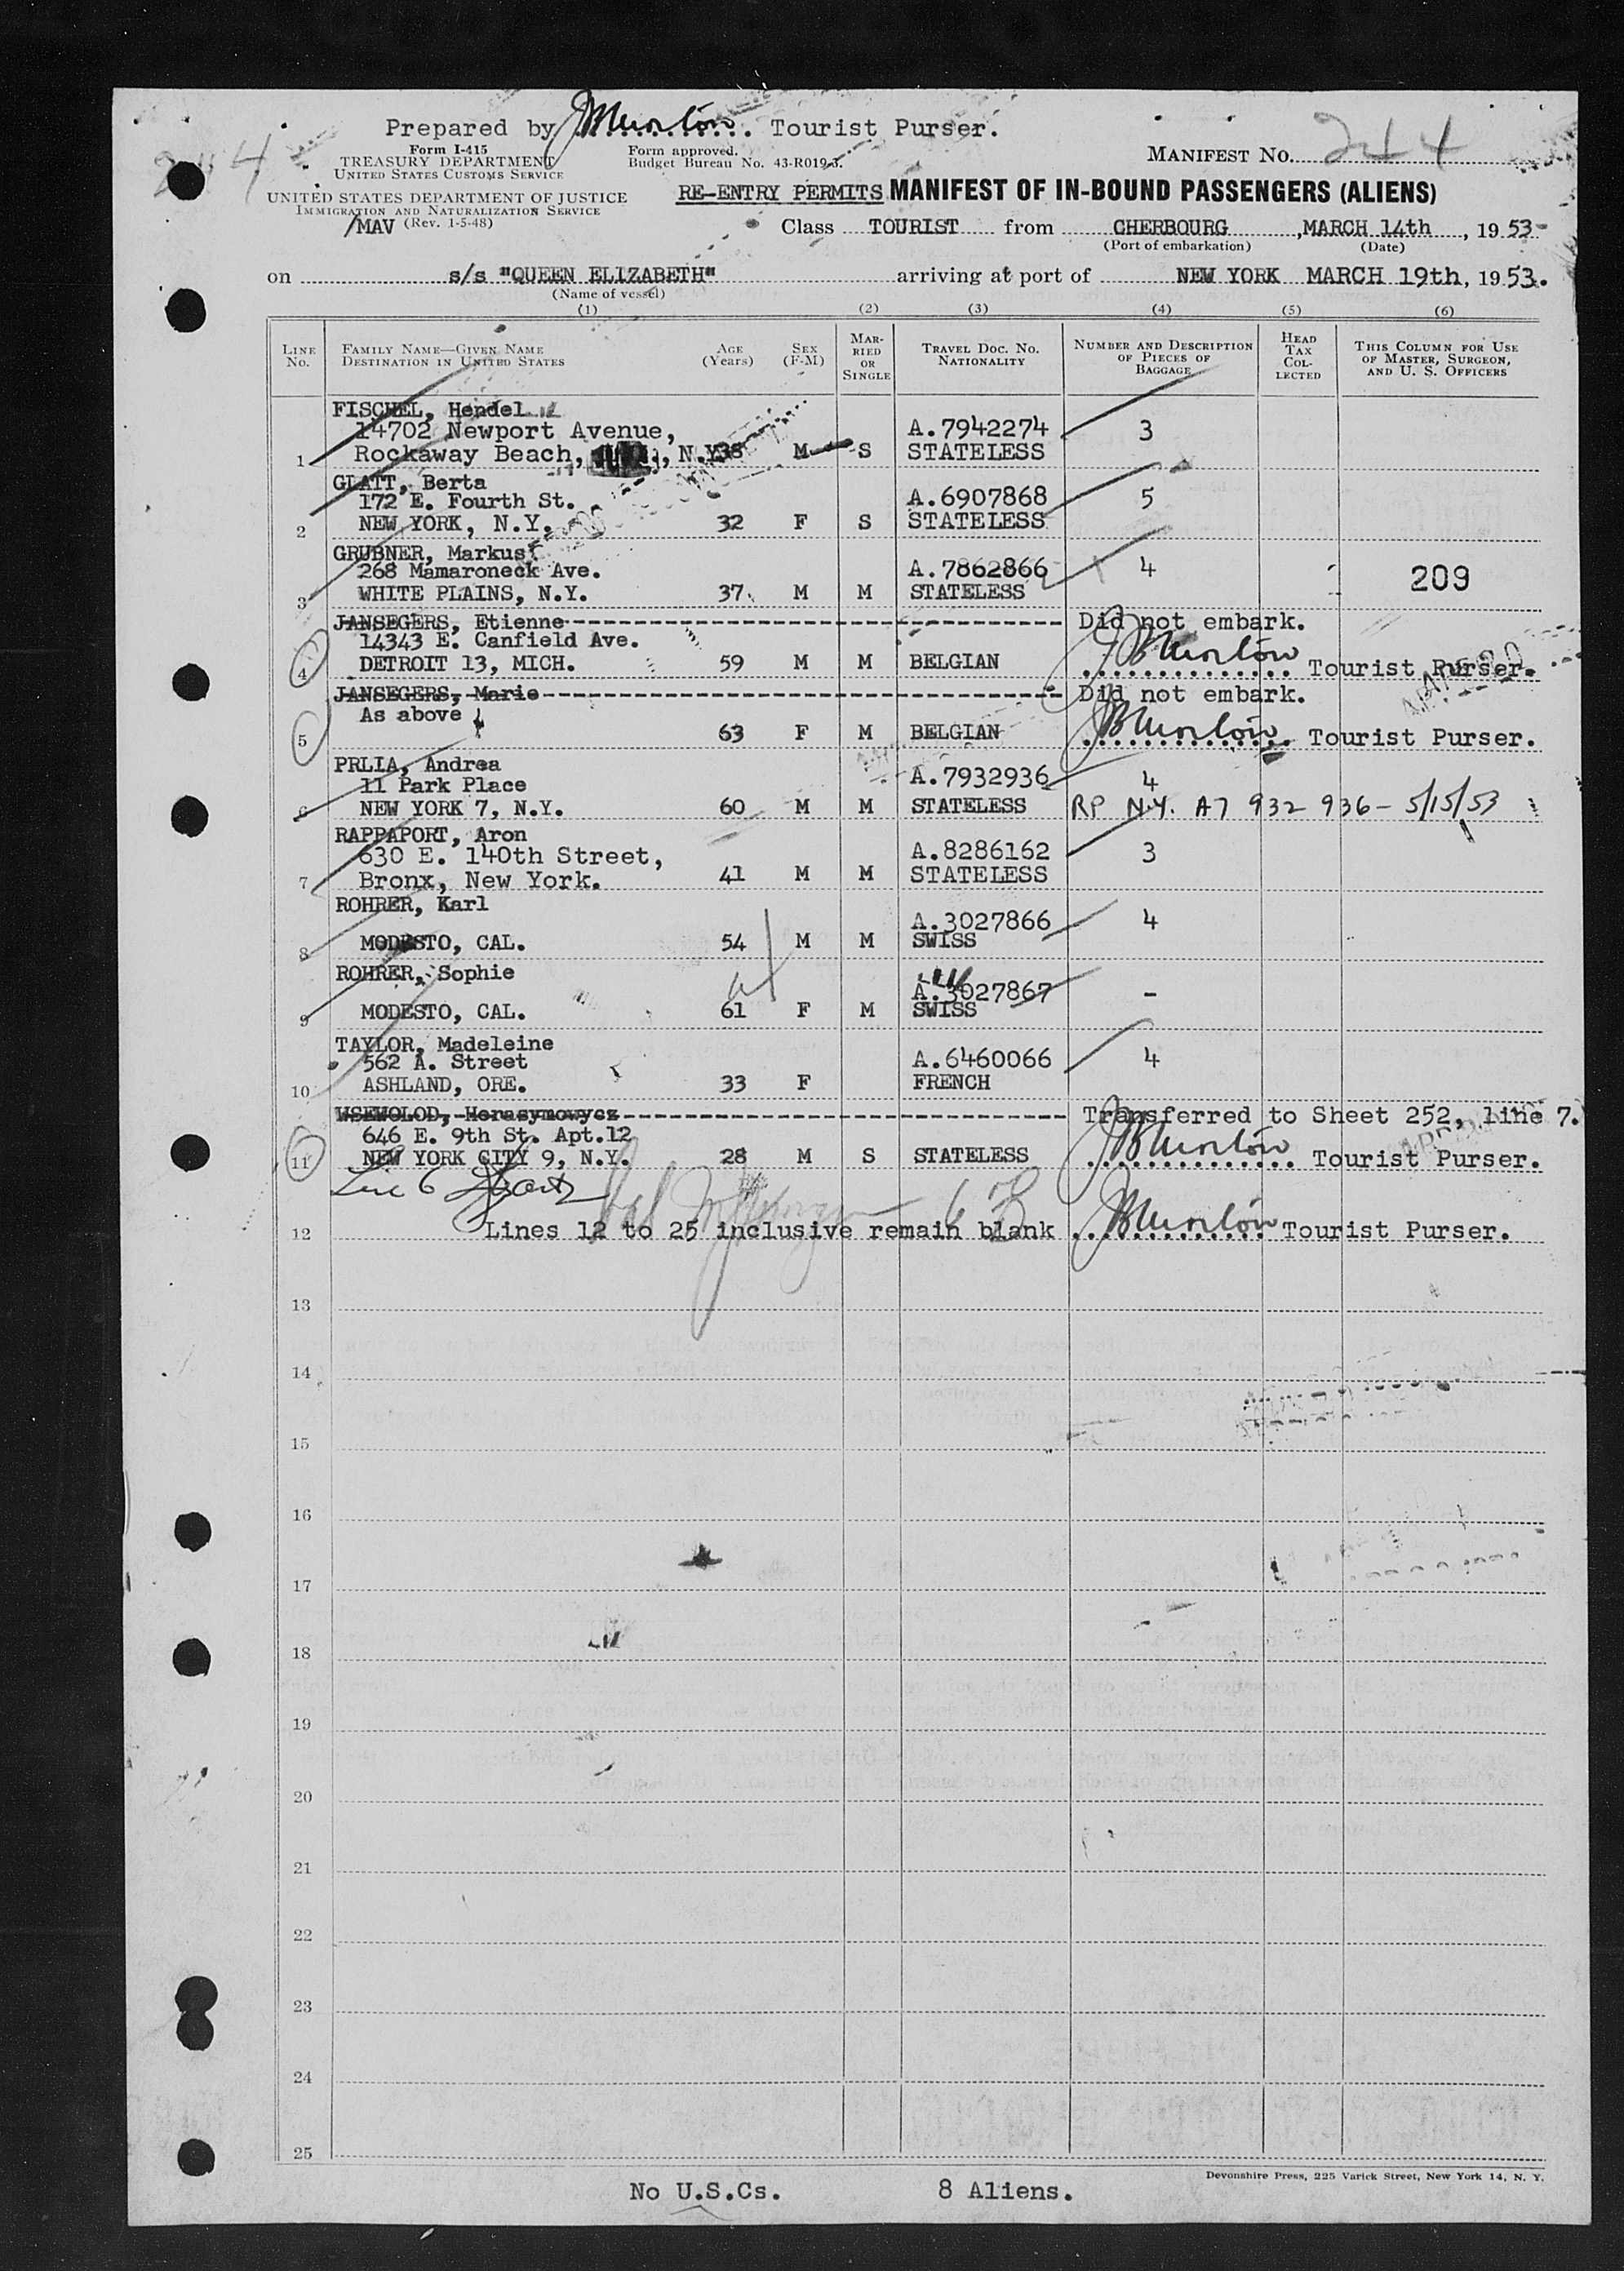 Prepared by ............. Tourist Purser.
Form I-415
TREASURY DEPARTMENT
UNITED STATES CUSTOMS SERVICE
Form approved.
Budget Bureau No. 43-R019-3.
MANIFEST No. 244
UNITED STATES DEPARTMENT OF JUSTICE
IMMIGRATION AND NATURALIZATION SERVICE
/MAV (Rev. 1-5-48)
RE-ENTRY PERMITS MANIFEST OF IN-BOUND PASSENGERS (ALIENS)
Class TOURIST from CHERBOURG, MARCH 14th, 1953
(Port of embarkation) (Date)
on s/s "QUEEN ELIZABETH" arriving at port of NEW YORK MARCH 19th, 1953.
(Name of vessel)
(1) (2) (3) (4) (5) (6)
LINE No. FAMILY NAME—GIVEN NAME DESTINATION IN UNITED STATES AGE (Years) SEX (F-M) MARRIED OR SINGLE TRAVEL DOC. NO. NATIONALITY NUMBER AND DESCRIPTION OF PIECES OF BAGGAGE HEAD TAX COLLECTED THIS COLUMN FOR USE OF MASTER, SURGEON, AND U. S. OFFICERS
FISCHEL, Hendel
14702 Newport Avenue, A.7942274 3
1 Rockaway Beach, N.Y. 38 M S STATELESS
GLATT, Berta
172 E. Fourth St. A.6907868 5
2 NEW YORK, N.Y. 32 F S STATELESS
GRUBNER, Markus
268 Mamaroneck Ave. A.7862866 4 209
3 WHITE PLAINS, N.Y. 37 M M STATELESS
JANSEGERS, Etienne Did not embark.
14343 E. Canfield Ave.
4 DETROIT 13, MICH. 59 M M BELGIAN Tourist Purser.
JANSEGERS, Marie Did not embark.
As above
5 63 F M BELGIAN Tourist Purser.
PRLIA, Andrea
11 Park Place A.7932936 4
6 NEW YORK 7, N.Y. 60 M M STATELESS RP N.Y. A7 932 936 - 5/15/53
RAPPAPORT, Aron
630 E. 140th Street, A.8286162 3
7 Bronx, New York. 41 M M STATELESS
ROHRER, Karl
A.3027866 4
8 MODESTO, CAL. 54 M M SWISS
ROHRER, Sophie
A.3027867 -
9 MODESTO, CAL. 61 F M SWISS
TAYLOR, Madeleine
562 A. Street A.6460066 4
10 ASHLAND, ORE. 33 F FRENCH
WSEWOLOD, Herasymowycz Transferred to Sheet 252, line 7.
646 E. 9th St. Apt.12
11 NEW YORK CITY 9, N.Y. 28 M S STATELESS Tourist Purser.
Line 6
12 Lines 12 to 25 inclusive remain blank Tourist Purser.
13
14
15
16
17
18
19
20
21
22
23
24
25
Devonshire Press, 225 Varick Street, New York 14, N. Y.
No U.S.Cs. 8 Aliens.